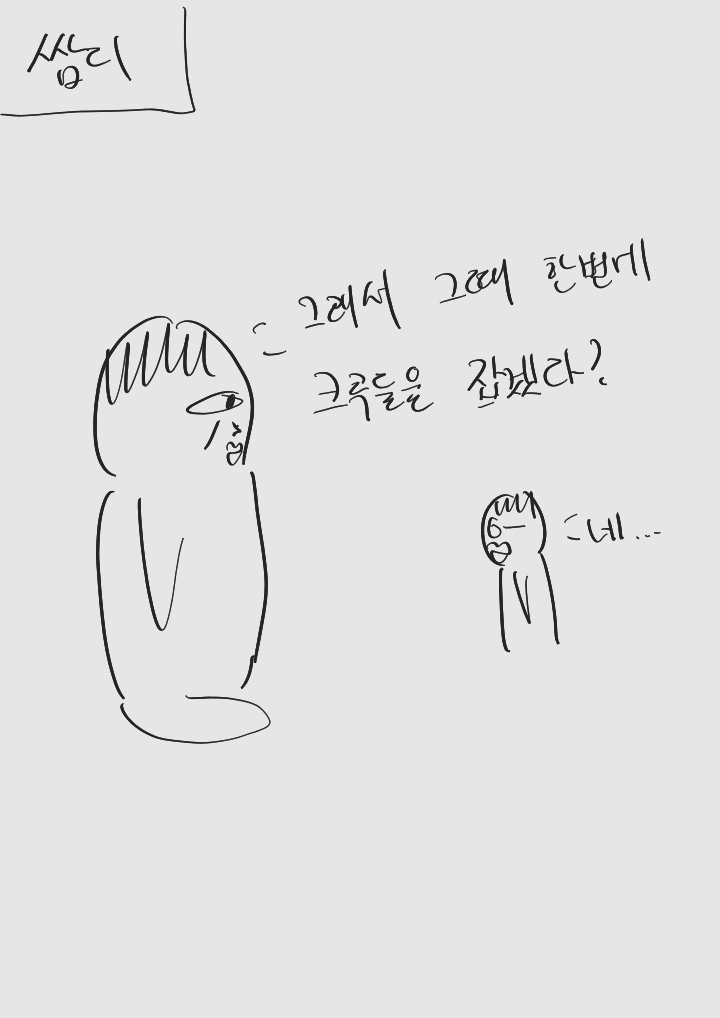 쌈디
그래서 그때 한번에
크루들을 잡겠다?
네...